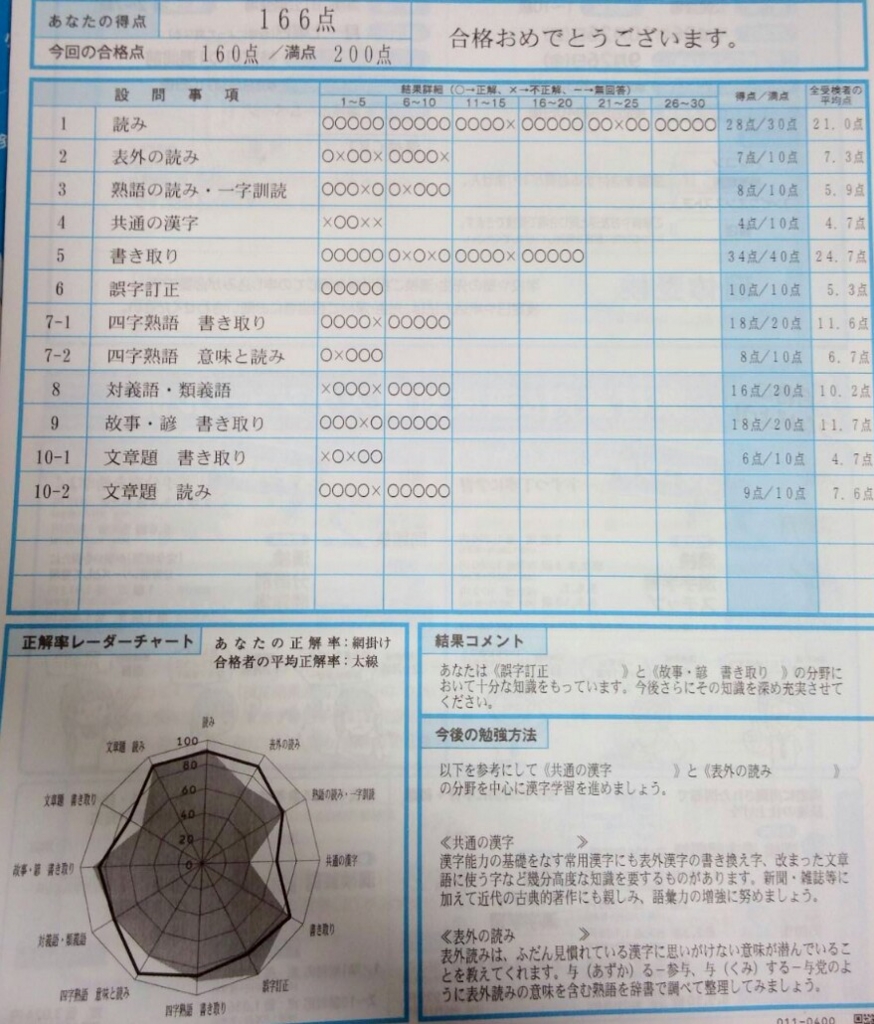 あなたの得点 166点
今回の合格点 160点 ／満点 200点
合格おめでとうございます。
設問事項 結果詳細（○→正解、×→不正解、－→無回答） 得点／満点 全受検者の平均点
1～5 6～10 11～15 16～20 21～25 26～30
1 読み ○○○○○ ○○○○○ ○○○○× ○○○○○ ○○×○○ ○○○○○ 28点／30点 21.0点
2 表外の読み ○×○○× ○○○○× 7点／10点 7.3点
3 熟語の読み・一字訓読 ○○○×○ ○×○○○ 8点／10点 5.9点
4 共通の漢字 ×○○×× 4点／10点 4.7点
5 書き取り ○○○○○ ○×○×○ ○○○○× ○○○○○ 34点／40点 24.7点
6 誤字訂正 ○○○○○ 10点／10点 5.3点
7-1 四字熟語 書き取り ○○○○× ○○○○○ 18点／20点 11.6点
7-2 四字熟語 意味と読み ○×○○○ 8点／10点 6.7点
8 対義語・類義語 ×○○○× ○○○○○ 16点／20点 10.2点
9 故事・諺 書き取り ○○○×○ ○○○○○ 18点／20点 11.7点
10-1 文章題 書き取り ×○×○○ 6点／10点 4.7点
10-2 文章題 読み ○○○○× ○○○○○ 9点／10点 7.6点
正解率レーダーチャート
あなたの正解率：網掛け
合格者の平均正解率：太線
読み
表外の読み
熟語の読み・一字訓読
共通の漢字
書き取り
誤字訂正
四字熟語 書き取り
四字熟語 意味と読み
対義語・類義語
故事・諺 書き取り
文章題 書き取り
文章題 読み
100
80
60
40
20
0
結果コメント
あなたは《誤字訂正 》と《故事・諺 書き取り 》の分野に
おいて十分な知識をもっています。今後さらにその知識を深め充実させて
ください。
今後の勉強方法
以下を参考にして《共通の漢字 》と《表外の読み 》
の分野を中心に漢字学習を進めましょう。
《共通の漢字 》
漢字能力の基礎をなす常用漢字にも表外漢字の書き換え字、改まった文章
語に使う字など幾分高度な知識を要するものがあります。新聞・雑誌等に
加えて近代の古典的著作にも親しみ、語彙力の増強に努めましょう。
《表外の読み 》
表外読みは、ふだん見慣れている漢字に思いがけない意味が潜んでいるこ
とを教えてくれます。与（あずか）る－参与、与（くみ）する－与党のよ
うに表外読みの意味を含む熟語を辞書で調べて整理してみましょう。